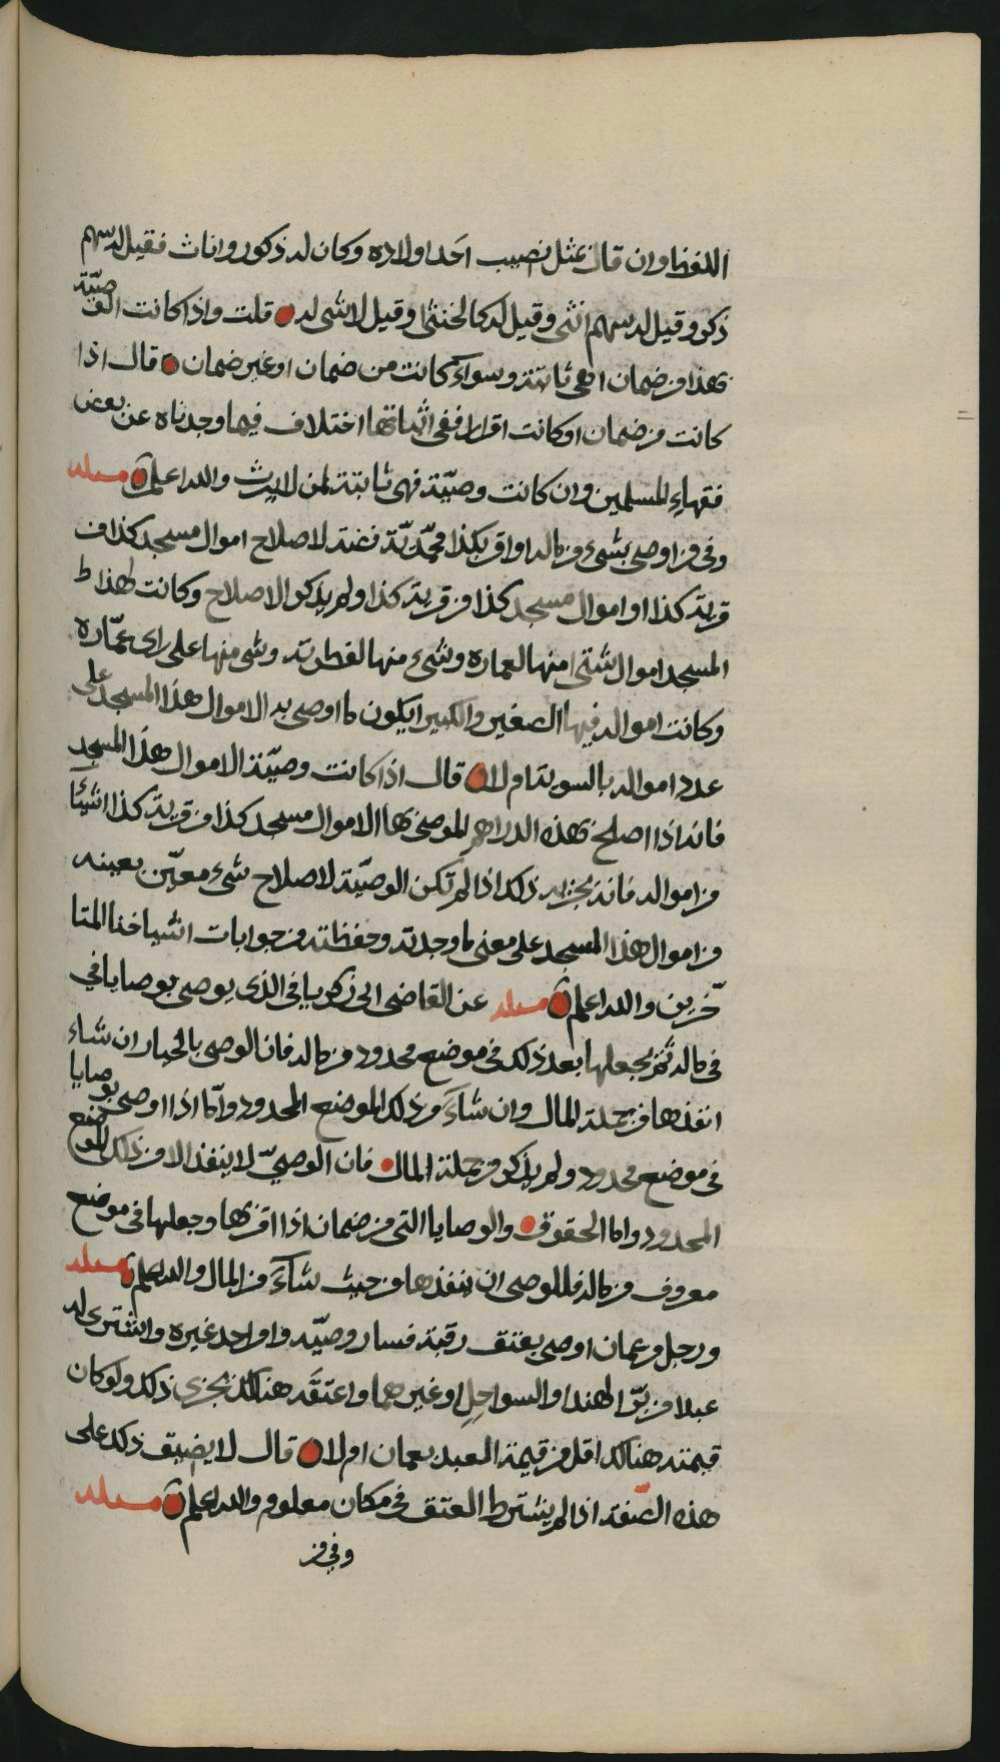 اللفظ وان قال بمثل نصيب احَد اولاده وكان له ذكور واناث فقيل له سهم
ذكر وقيل له سهم انثى وقيل له كالخنثى وقيل لا شى له قلت واذا كانت الوصيّة
بهذا من ضمان اهى ثابتة وسوآء كانت من ضمان او غير ضمان قال اذا
كانت من ضمان او كانت اقرارا ففى اثباتها اختلاف فيما وجدناه عن بعض
فقهاءِ المسلمين وان كانت وصيّة فهى ثابتة لمن لا يرث والله اعلم مسئله
وفى من اوصى بشىء من ماله او اقر بكذا محمّديّة فضة لاصلاح اموال مسجد كذا من
قرية كذا او اموال مسجد كذا من قرية كذا ولم يذكر الاصلاح وكانت لهذا
المسجد اموال شتى منها لعماره وشىء منها لفطرته وشى منها على راى عمّاره
وكانت امواله فيها الصغير والكبير ايكون ما اوصى به الاموال هذا المسجد على
عدد امواله بالسوية ام لا قال اذا كانت وصيّة الاموال هذا المسجد
فانه اذا اصلح بهذه الدراهم الموصى بها الاموال مسجد كذا من قرية كذا شيئًا
من امواله فانه يجزيه ذلك اذا لم تكن الوصيّة لاصلاح شىء معيّن بعينه
من اموال هذا المسجد على معنى ما وجدته وحفظته من جوابات اشياخنا المتا
خّرين والله اعلم مسئله عن القاضى ابى زكريا فى الذى يوصى بوصايا فى
فى ماله ثم يجعلها بعد ذلك فى موضع محدود من ماله فان الوصى بالخيار ان شاء
انفذها من جملة المال وان شآءَ من ذلك الموضع المحدود وامّا اذا اوصى بوصايا
فى موضع محدود ولم يذكر من جملة المال فان الوصىّ لا ينفذ الا من ذلك الموضع
المحدود واما الحقوق والوصايا التى من ضمان اذا اقر بها وجعلها فى موضع
معروف من ماله فللوصى ان ينفذها من حيث شآءَ من المال والله اعلم مسئله
ورجل من عمان اوصى بعتق رقبة فسار وصيّه او احد غيره واشترى له
عبدا من برّ الهند او السواحِلِ او غيرهما واعتقَه هنالك يجزى ذلك ولو كان
قيمته هنالك اقل من قيمة العبد بعمان ام لا قال لا يضيق ذلك على
هذه الصّفة اذا لم يشترط العتق فى مكان معلوم والله اعلم مسئله
وفى من